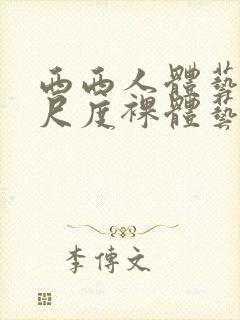 西西人體藝
尺度裸體藝
李傳文